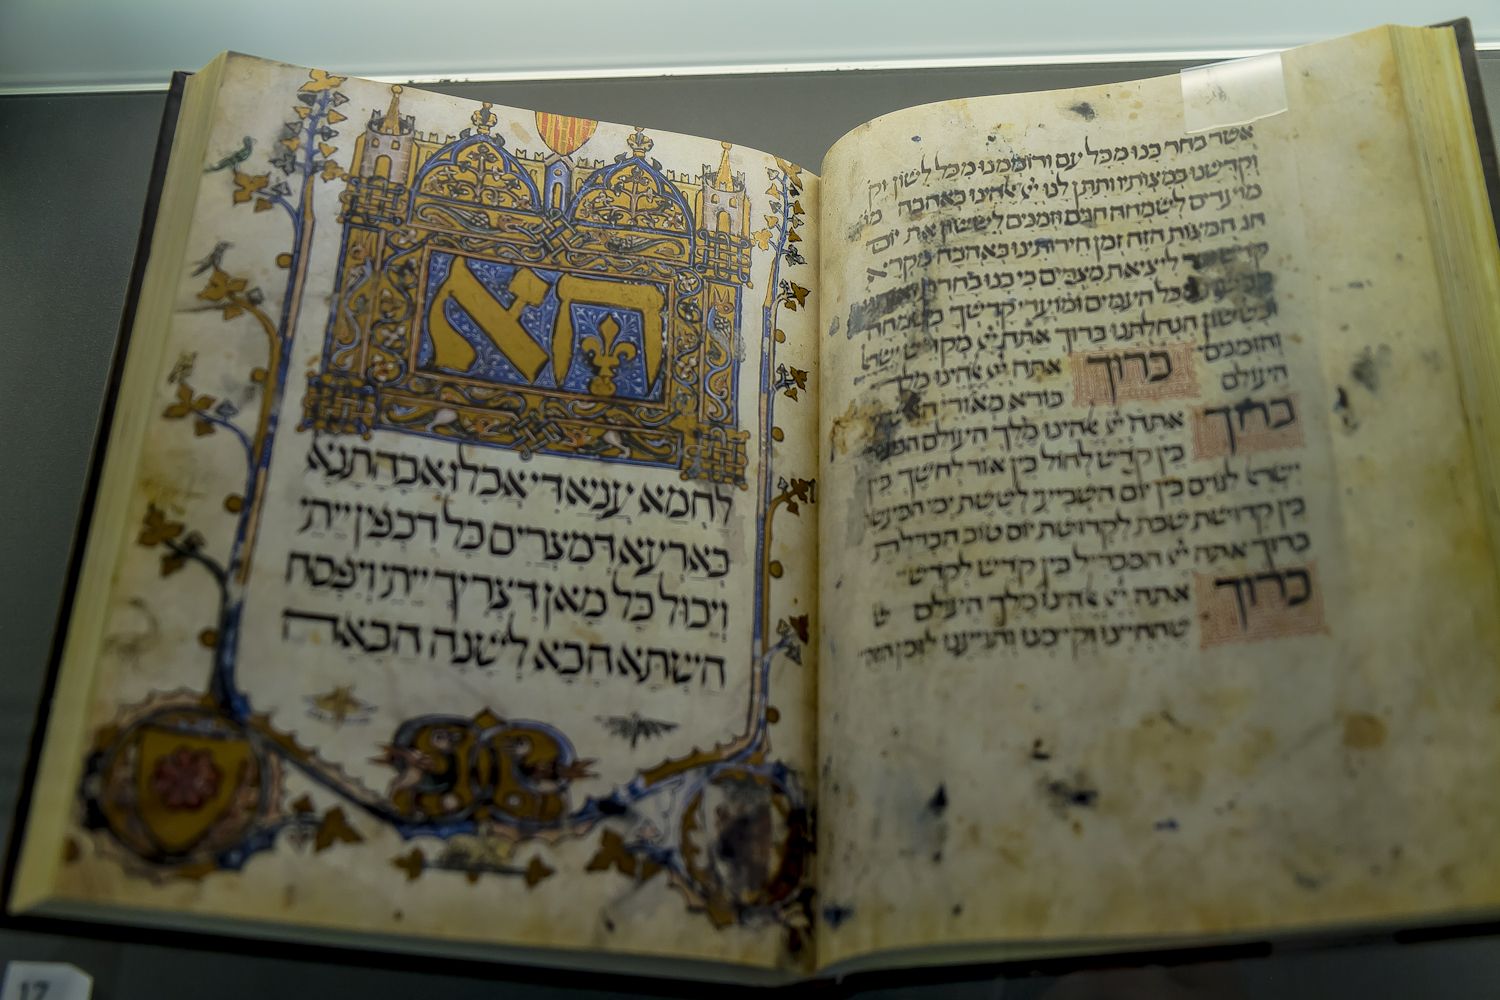 אשר בחר בנו מכל עם ורוממנו מכל לשון וק
וקדשנו במצותיו ותתן לנו יי אלהינו באהבה מו
מועדים לשמחה חגים וזמנים לששון את יום
חג המצות הזה זמן חירותינו באהבה מקרא
קדש ליציאת מצרים כי בנו בחרת
מכל העמים ומועדי קדשך בשמחה
ובששון הנחלתנו ברוך אתה יי מקדש ישראל
והזמנים ברוך אתה יי אלהינו מלך
העולם בורא מאורי האש
ברוך אתה יי אלהינו מלך העולם
בין קדש לחול בין אור לחשך בין
ישראל לגוים בין יום השביעי לששת ימי המעשה
בין קדושת שבת לקדושת יום טוב הבדלת
ברוך אתה יי המבדיל בין קדש לקדש
ברוך אתה יי אלהינו מלך העולם ש
שהחיינו וקיימנו והגיענו לזמן הזה
הא
לחמא עניא די אכלו אבהתנא
בארעא דמצרים כל דכפין ייתי
ויכול כל מאן דצריך ייתי ויפסח
השתא הכא לשנה הבאה
17